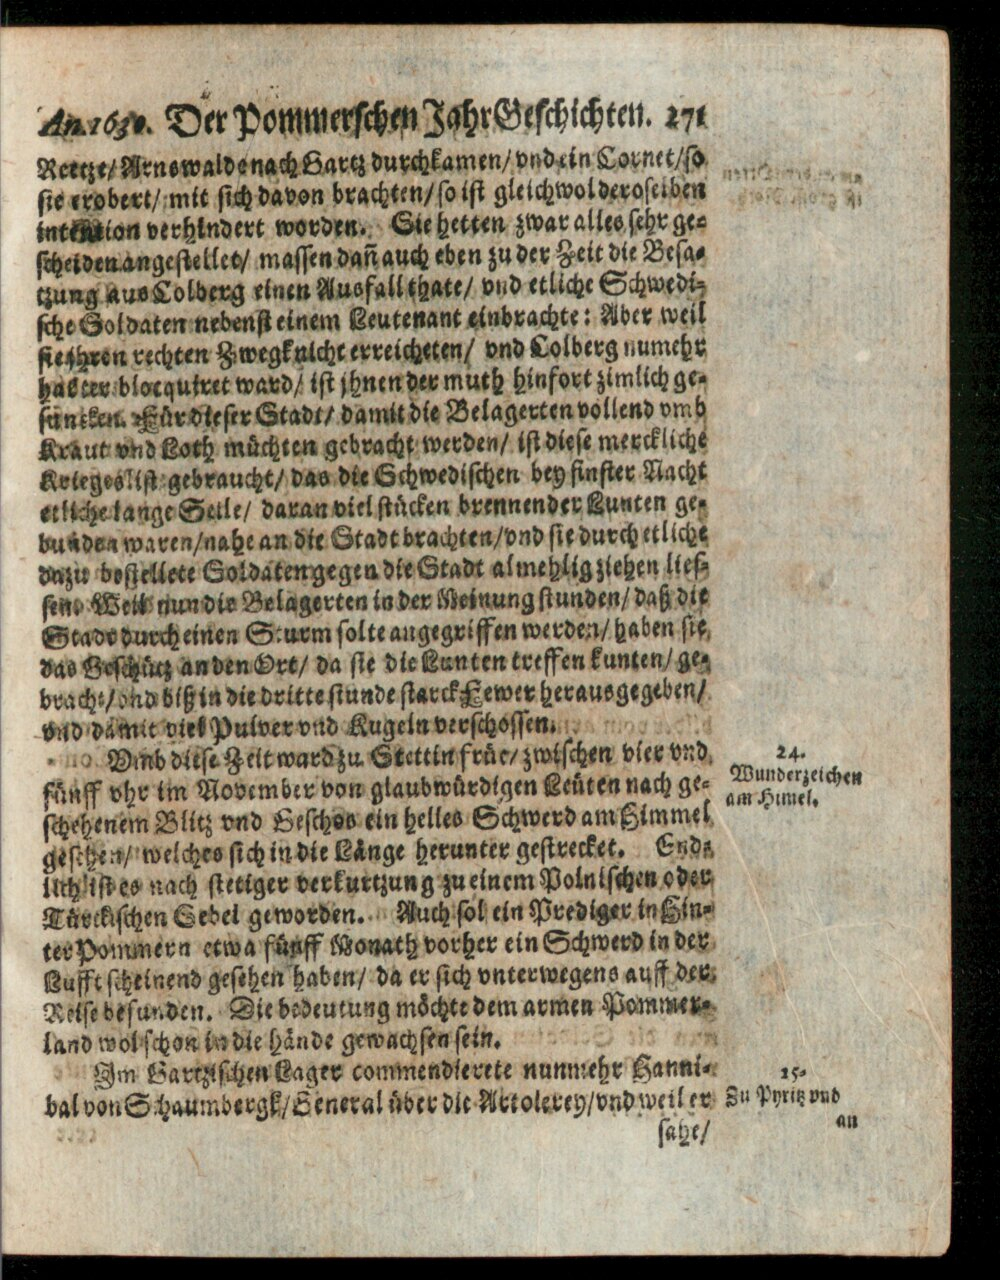 An. 1630. Der Pommerschen JahrGeschichten. 271
Reetze/ Arnswalde nach Gartz durchkamen/ vnd ein Cornet/ so
sie erobert/ mit sich davon brachten/ so ist gleichwol deroselben
intention verhindert worden. Sie hetten zwar alles sehr ge-
scheiden angestellet/ massen dañ auch eben zu der Zeit die Besa-
tzung aus Colberg einen Ausfall thate/ vnd etliche Schwedi-
sche Soldaten nebenst einem Leutenant einbrachte: Aber weil
sie jhren rechten Zwegk nicht erreicheten/ vnd Colberg numehr
harter blocquiret ward/ ist jhnen der muth hinfort zimlich ge-
suncken. Für dieser Stadt/ damit die Belagerten vollend vmb
Kraut vnd Loth müchten gebracht werden/ ist diese merckliche
Krieges list gebraucht/ das die Schwedischen bey finster Nacht
etliche lange Seile/ daran viel stücken brennender Lunten ge-
bunden waren/ nahe an die Stadt brachten/ vnd sie durch etliche
dazu bestellete Soldaten gegen die Stadt almehlig ziehen lies-
sen. Weil nun die Belagerten in der Meinung stunden/ daß die
Stadt durch einen Sturm solte angegriffen werden/ haben sie
das Geschütz an den Ort/ da sie die Lunten treffen kunten/ ge-
bracht/ vnd biß in die dritte stunde starck Fewer heraus gegeben/
vnd damit viel Pulver vnd Kugeln verschossen.
Vmb diese Zeit ward zu Stettin früe/ zwischen vier vnd
fünff vhr im November von glaubwürdigen Leüten nach ge-
schehenem Blitz vnd Geschos ein helles Schwerd am Himmel
gesehen/ welches sich in die Länge herunter gestrecket. End-
lich ist es nach stetiger verkurtzung zu einem Polnischen oder
Türckischen Sebel geworden. Auch sol ein Prediger in Hin-
ter Pommern etwa fünff Monath vorher ein Schwerd in der
Lufft scheinend gesehen haben/ da er sich vnterwegens auff der
Reise befunden. Die bedeutung möchte dem armen Pommer-
land wol schon in die hände gewachsen sein.
24.
Wunderzeichen
am Himel.
Im Gartzischen Lager commendierete nunmehr Hanni-
bal von Schaumbergk/ General über die Artolerey/ vnd weil er
sahe/
25.
Zu Pyritz vnd
an